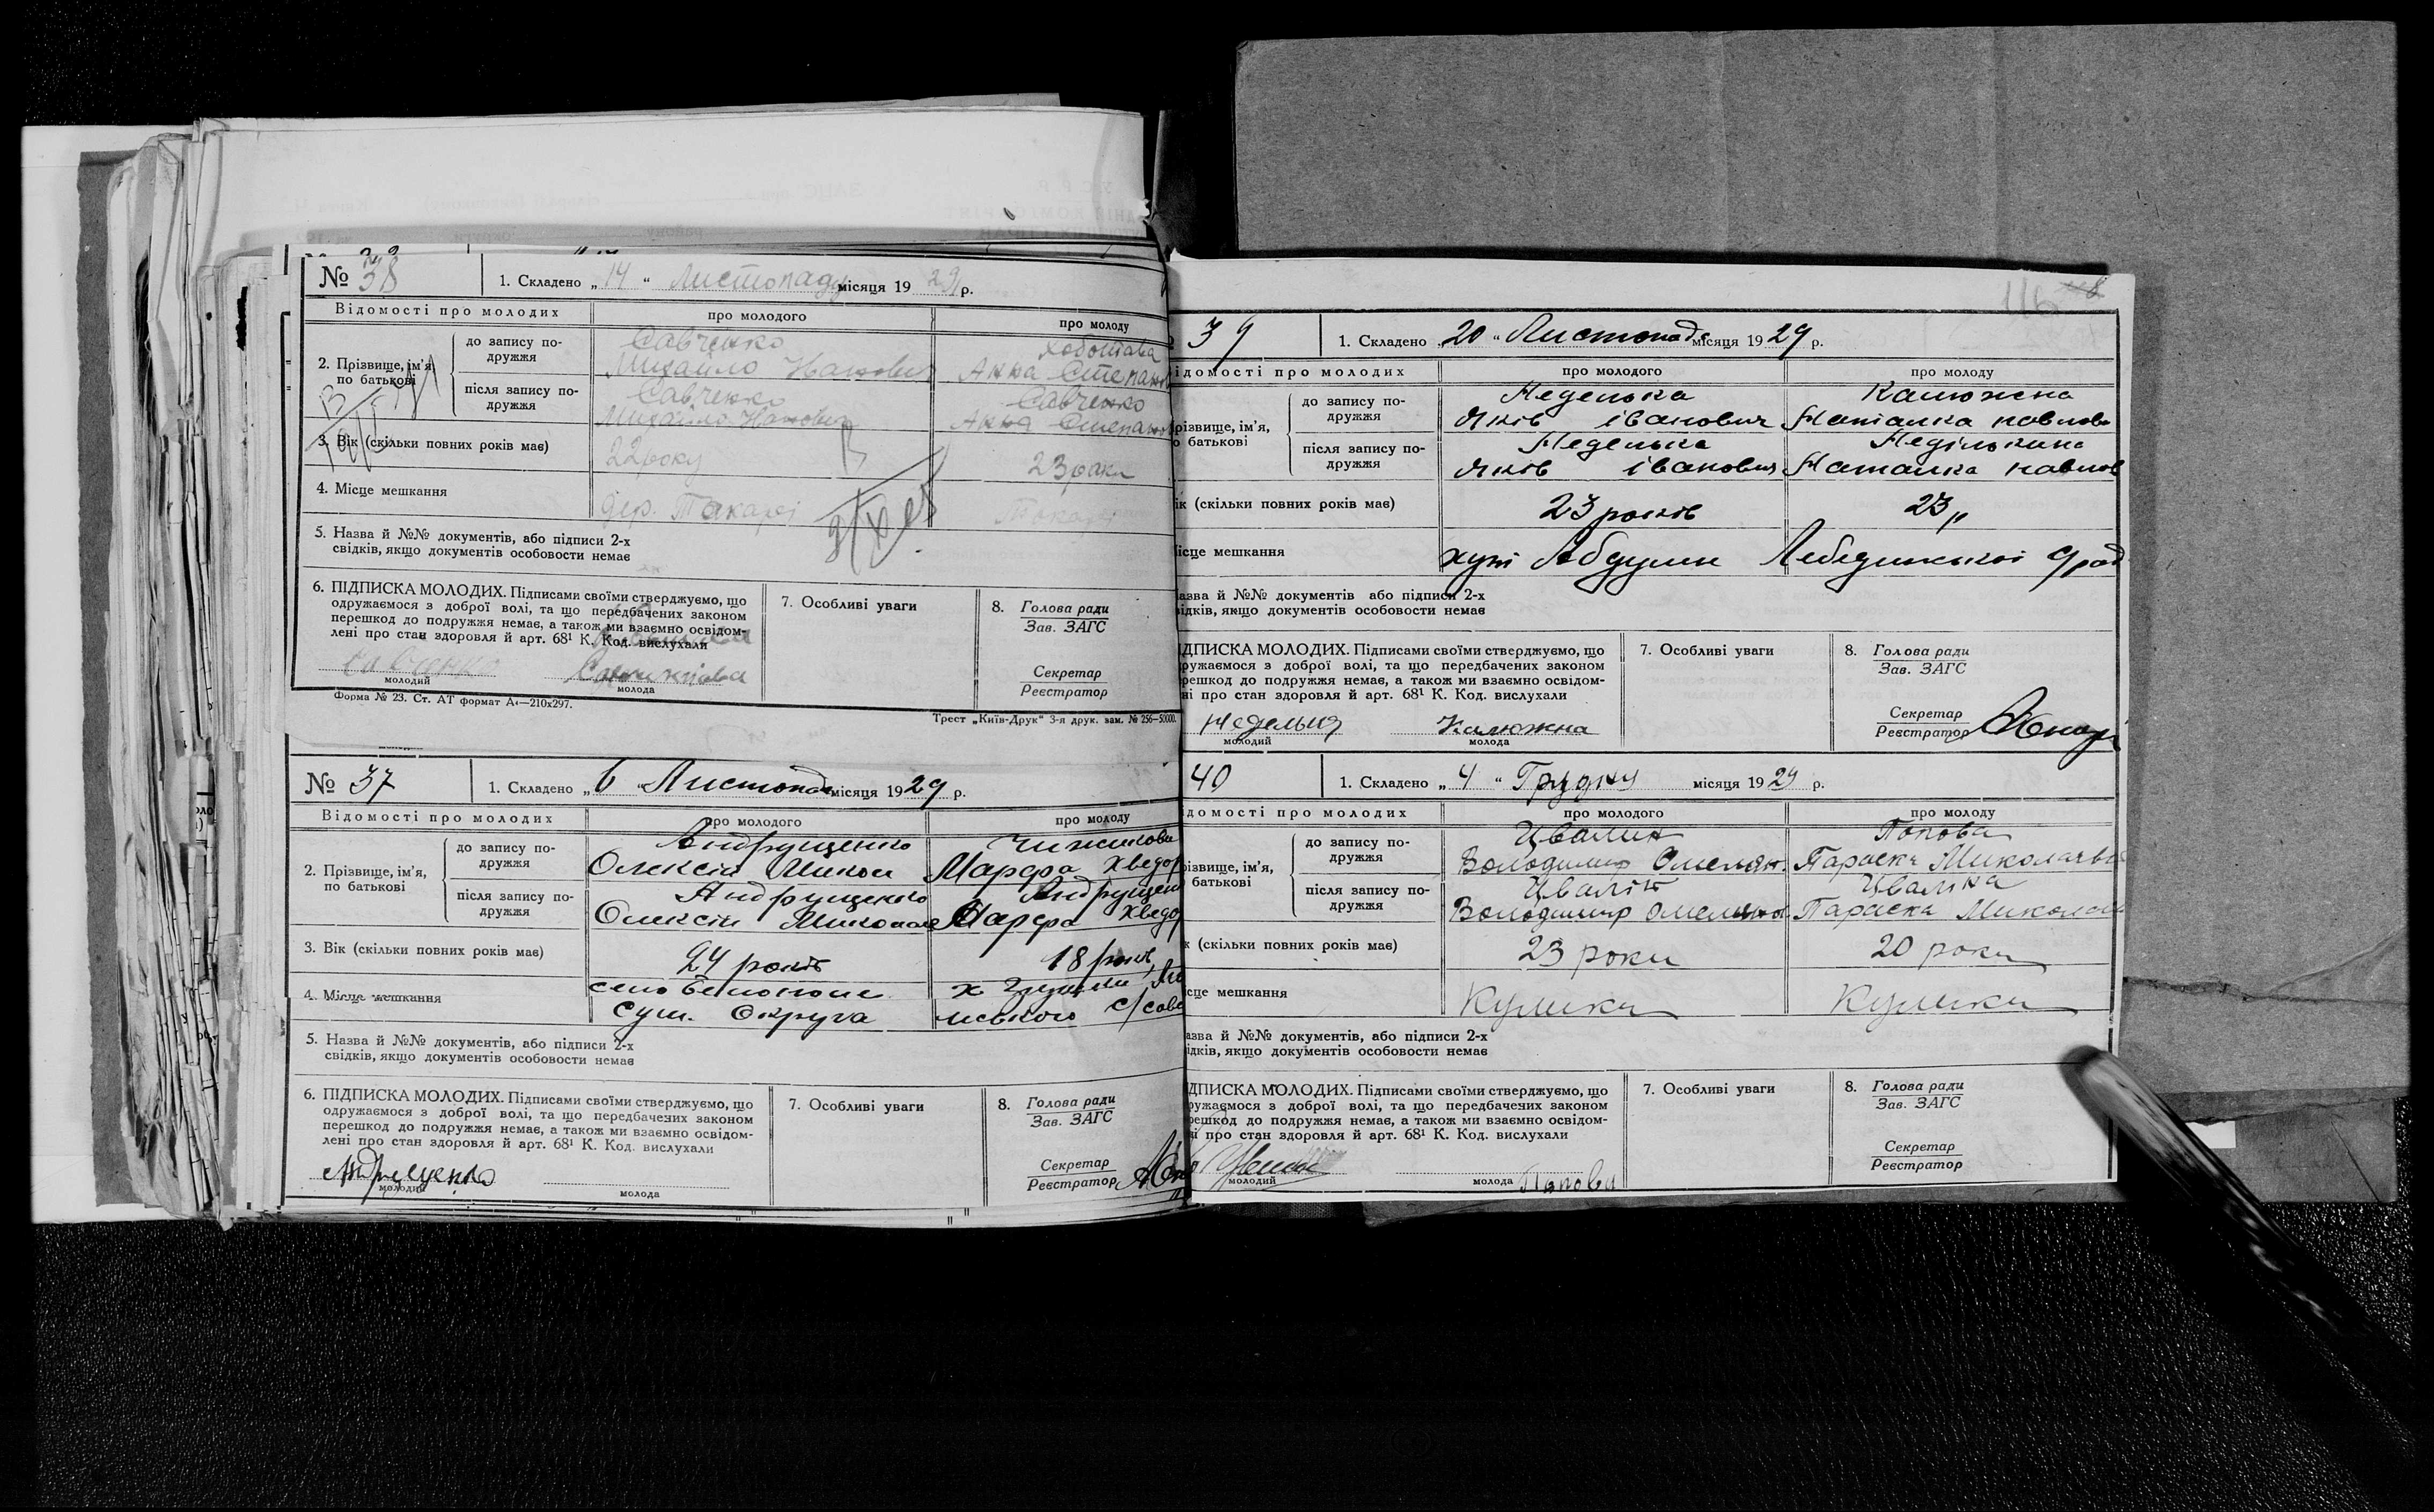 № 38
1. Складено „ 14 “ Листопаду місяця 19 29 р.
Відомості про молодих
про молодого
про молоду
2. Прізвище, ім'я, по батькові
до запису по-
дружжя
Савченко
Михайло
Хоботова
Анна Степан
після запису по-
дружжя
Савченко
Михайло
Савченко
Анна Степан
3. Вік (скільки повних років має)
22 року
23 роки
4. Місце мешкання
дер. Токарі
Токарі
5. Назва й №№ документів, або підписи 2-х
свідків, якщо документів особовости немає
6. ПІДПИСКА МОЛОДИХ. Підписами своїми стверджуємо, що
одружаємося з доброї волі, та що передбачених законом
перешкод до подружжя немає, а також ми взаємно освідом-
лені про стан здоровля й арт. 68¹ К. Код. вислухали
Савченко
молодий
молода
7. Особливі уваги
8. Голова ради
Зав. ЗАГС
Секретар
Реєстратор
Форма № 23. Ст. АТ формат А₄—210x297.
Трест „Київ-Друк“ 3-я друк. зам. № 256—50000.
№ 37
1. Складено „ 6 Листопада місяця 19 29 р.
Відомості про молодих
про молодого
про молоду
2. Прізвище, ім'я,
по батькові
до запису по-
дружжя
Андрущенко
Олексій Микол
Чижикова
Марфа Хведор
після запису по-
дружжя
Андрущенко
Олексій Микола
Андрущен
Марфа Хведо
3. Вік (скільки повних років має)
24 років
18 років
4. Місце мешкання
село Белополе
Сум. Округа
х
нського с/сове
5. Назва й №№ документів, або підписи 2-х
свідків, якщо документів особовости немає
6. ПІДПИСКА МОЛОДИХ. Підписами своїми стверджуємо, що
одружаємося з доброї волі, та що передбачених законом
перешкод до подружжя немає, а також ми взаємно освідом-
лені про стан здоровля й арт. 68¹ К. Код. вислухали
Андрущенко
молодий
молода
7. Особливі уваги
8. Голова ради
Зав. ЗАГС
Секретар
Реєстратор
116
39
1. Складено „ 20 “ Листопада місяця 19 29 р.
ідомості про молодих
про молодого
про молоду
різвище, ім'я,
о батькові
до запису по-
дружжя
Неделька
Яків іванович
Калюжна
Наталка павлов
після запису по-
дружжя
Неделька
Яків іванович
Недількина
Наталка павлов
ік (скільки повних років має)
23 років
23 „
ісце мешкання
хут Абдули Лебединської с/рад
азва й №№ документів або підписи 2-х
ідків, якщо документів особовости немає
ІДПИСКА МОЛОДИХ. Підписами своїми стверджуємо, що
ружаємося з доброї волі, та що передбачених законом
решкод до подружжя немає, а також ми взаємно освідом-
ні про стан здоровля й арт. 68¹ К. Код. вислухали
Неделька
молодий
Калюжна
молода
7. Особливі уваги
8. Голова ради
Зав. ЗАГС
Секретар
Реєстратор
40
1. Складено „ 4 “ Грудня місяця 19 29 р.
домості про молодих
про молодого
про молоду
різвище, ім'я,
батькові
до запису по-
дружжя
Цвалин
Володимир Омелян.
Попова
Параска Миколаєв
після запису по-
дружжя
Цвалін
Володимир Омелян
Цваліна
Параска Микола
к (скільки повних років має)
23 роки
20 роки
сце мешкання
Кулики
Кулики
азва й №№ документів, або підписи 2-х
ідків, якщо документів особовости немає
ІДПИСКА МОЛОДИХ. Підписами своїми стверджуємо, що
ружаємося з доброї волі, та що передбачених законом
решкод до подружжя немає, а також ми взаємно освідом-
і про стан здоровля й арт. 68¹ К. Код. вислухали
молодий
молода
Попова
7. Особливі уваги
8. Голова ради
Зав. ЗАГС
Секретар
Реєстратор